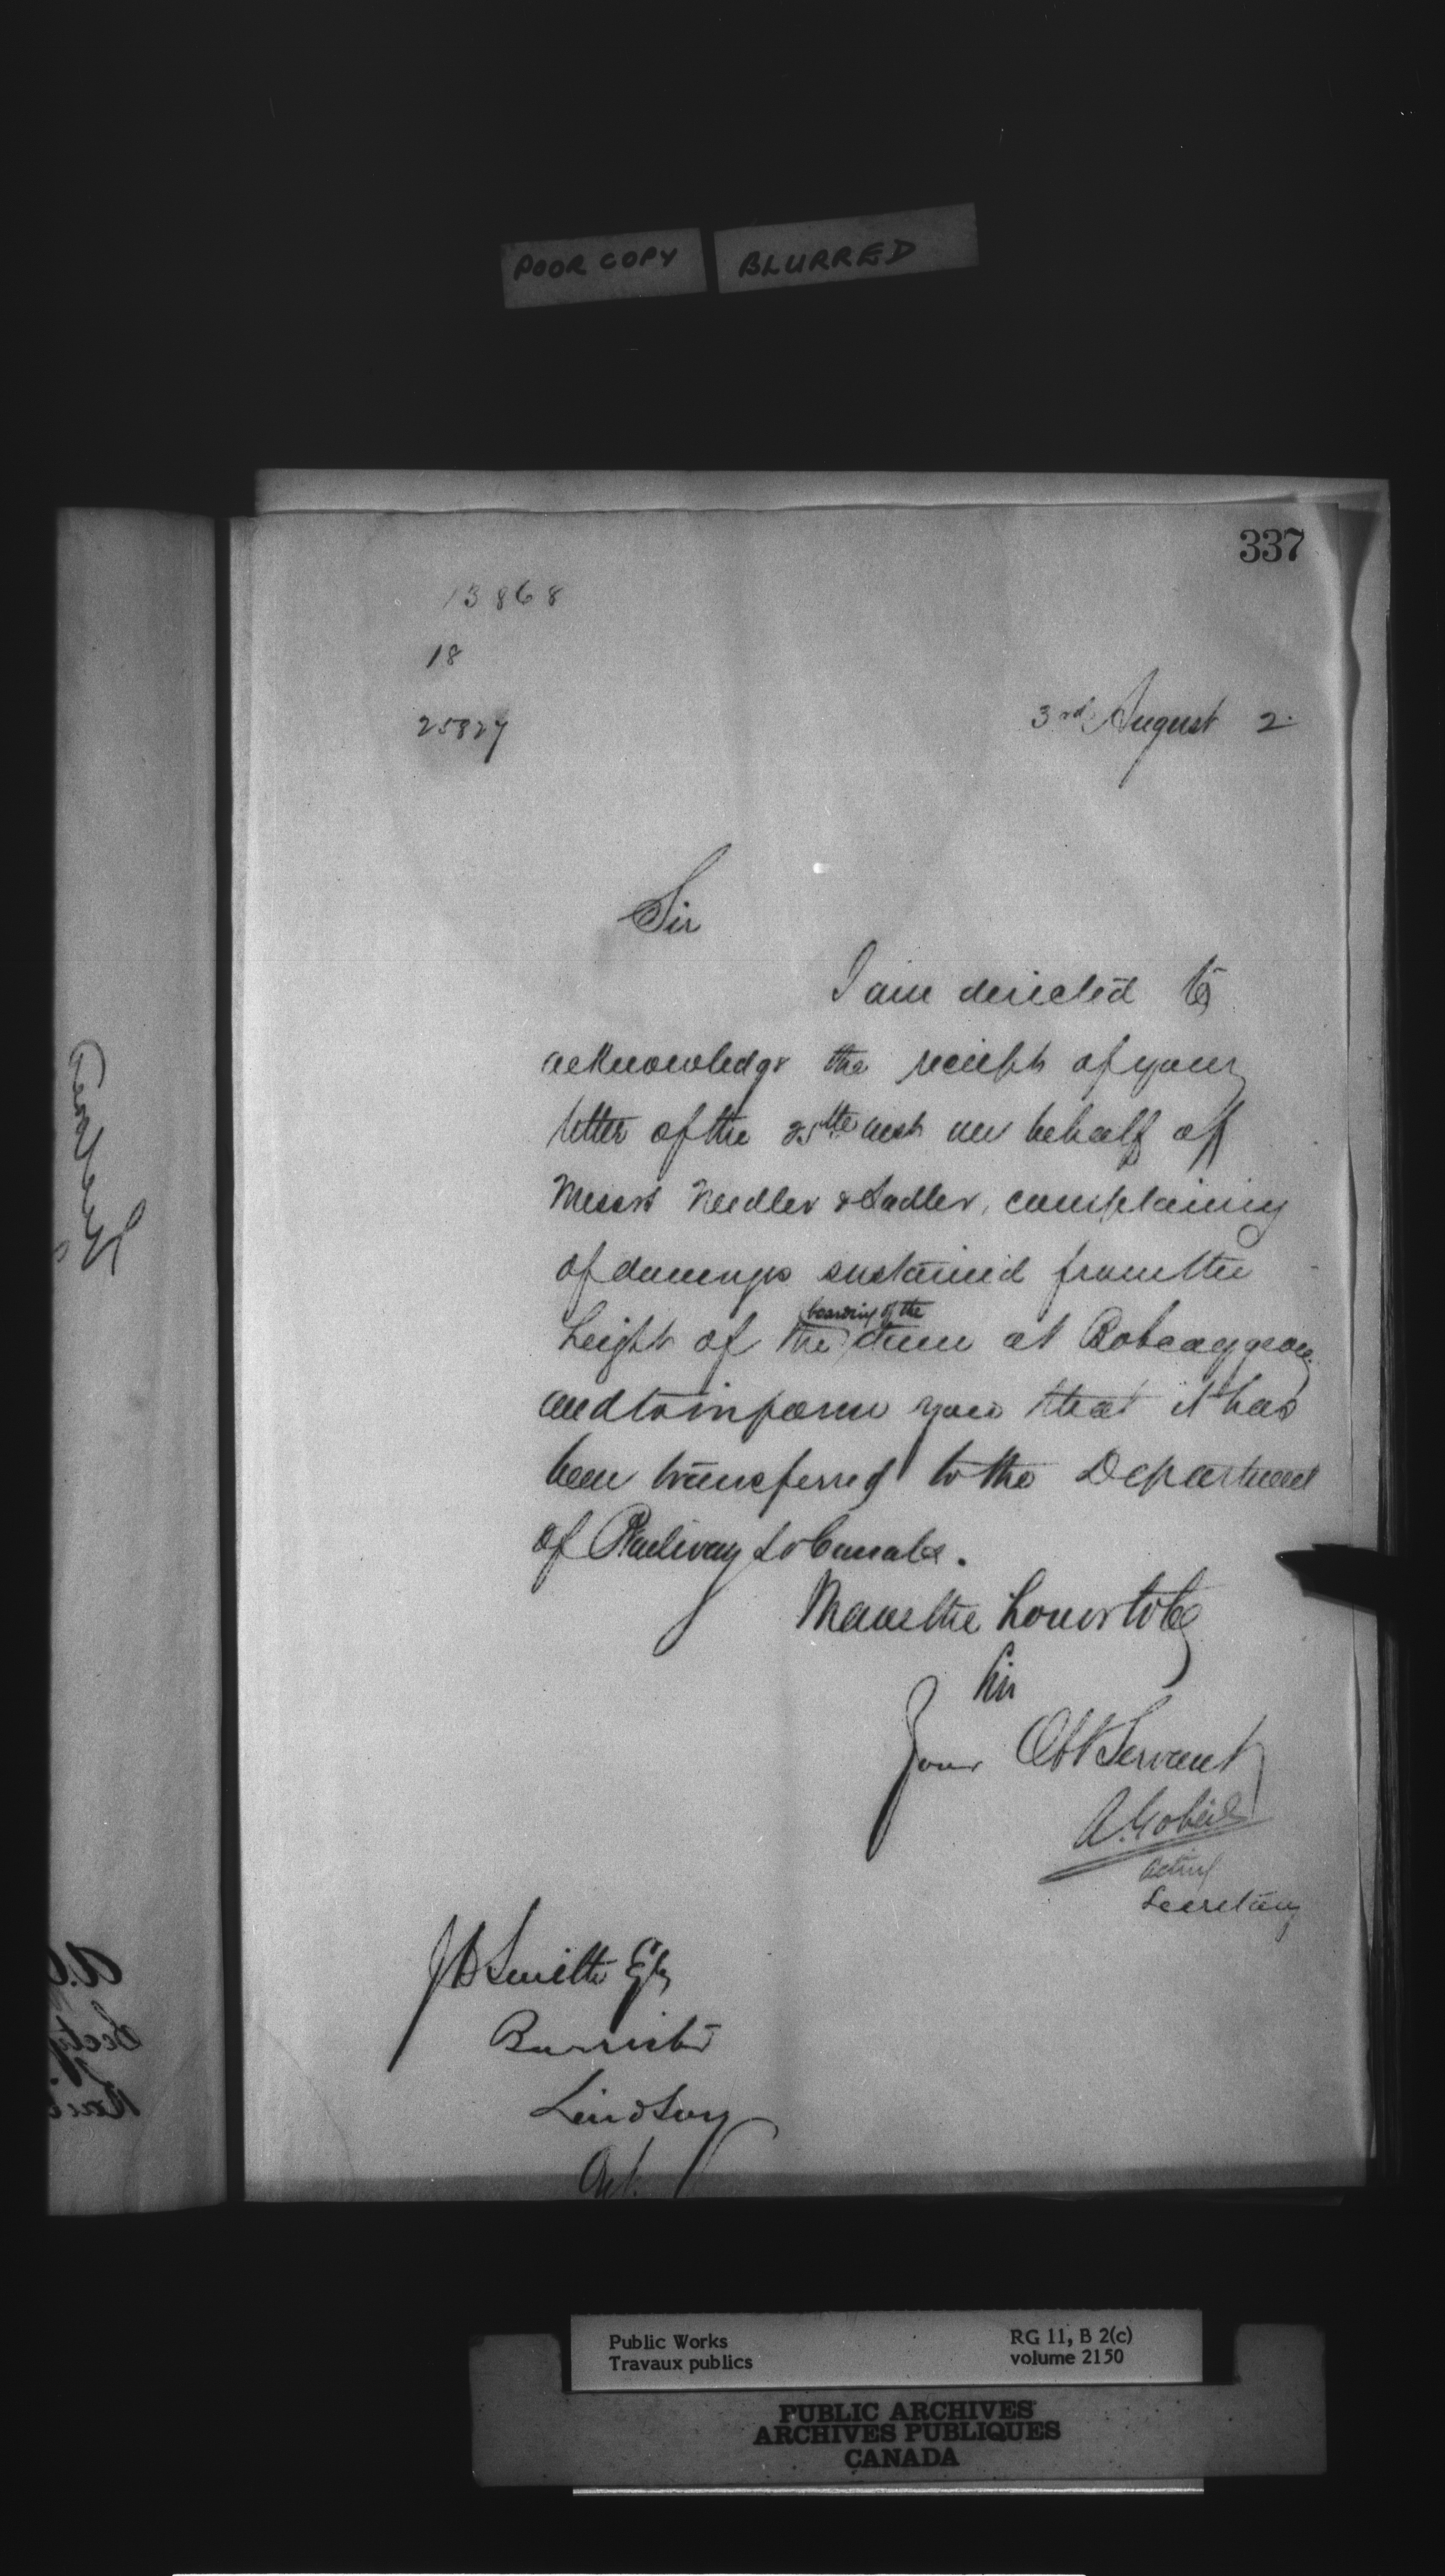 POOR COPY BLURRED
337
13868
18
25827
3rd August 2.
Sir
I am directed to
acknowledge the receipt of your
letter of the 25th inst on behalf of
Messrs Needler & Sadler, complaining
of damages sustained from the
height of the boarding of the dam at Bobcaygeon
and to inform you that it has
been transferred to the Department
of Railway & Canals.
I have the honor to be
Sir
Your Obt Servant
A. Gobeil
acting
Secretary
J B Smith Esq
Barrister
Lindsay
Ont.
Public Works
Travaux publics
RG 11, B 2(c)
volume 2150
PUBLIC ARCHIVES
ARCHIVES PUBLIQUES
CANADA